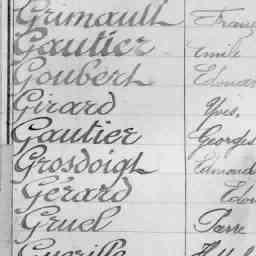 Grimault Franç
Gautier Emile
Goubert Edouar
Girard Yves.
Gautier Georges
Grosdoigt Edmond
Gérard Edou
Gruel Pierre